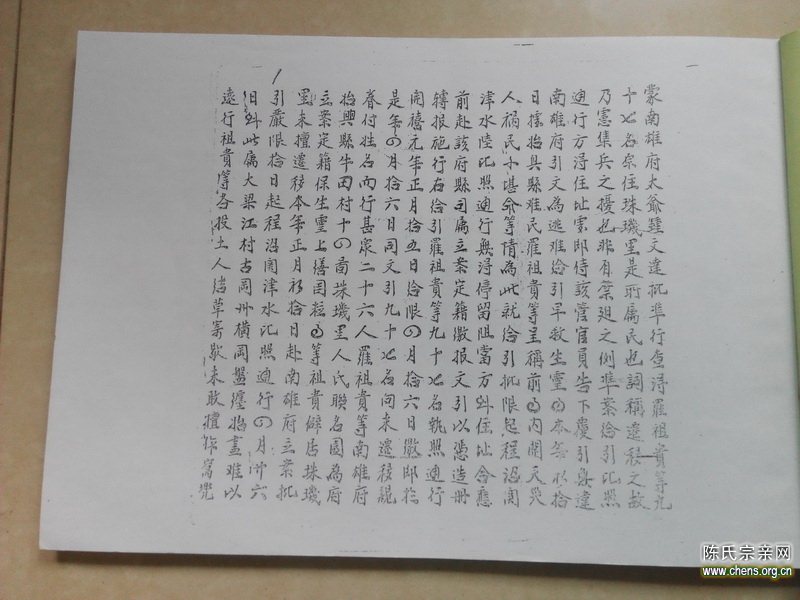 蒙南雄府太爺鍾文達批準行查得羅祖貴等九
十七名原住珠璣里是所屬民也詞稱遷移之故
乃憲集兵之擾也非有禁廷之例準案給引比照
通行方得住址雲即侍該管官員告下覆引無違
南雄府引文為逃難給引早救生靈本年
日據始興縣難民羅祖貴等呈稱前內開天災
人禍民不堪命等情為此就給引批限起程沿關
津水陸比照通行無得停留阻當方到住址合應
前赴該府縣司屬立案定籍繳報文引以憑造冊
轉報施行存給引羅祖貴等九十七名執照通行
開禧元年正月拾五日給限四月拾六日繳
是年四月拾六日同文引九十七名向來遷移
眷付姓名而行甚眾二十六人羅祖貴等南雄府
始興縣牛田村十四圖珠璣里人氏聯名團為府
立案定籍保生靈上繕國粧等祖貴僻居珠璣
里未擅遷移本年正月初拾日赴南雄府立案批
引嚴限拾日起程沿關津水比照通行四月廿六
日到此屬大梁江村古岡州橫岡盤纏始盡難以
遠行祖貴等各投土人結草寄歇未敢擅作
陈氏宗亲网
www.chens.org.cn